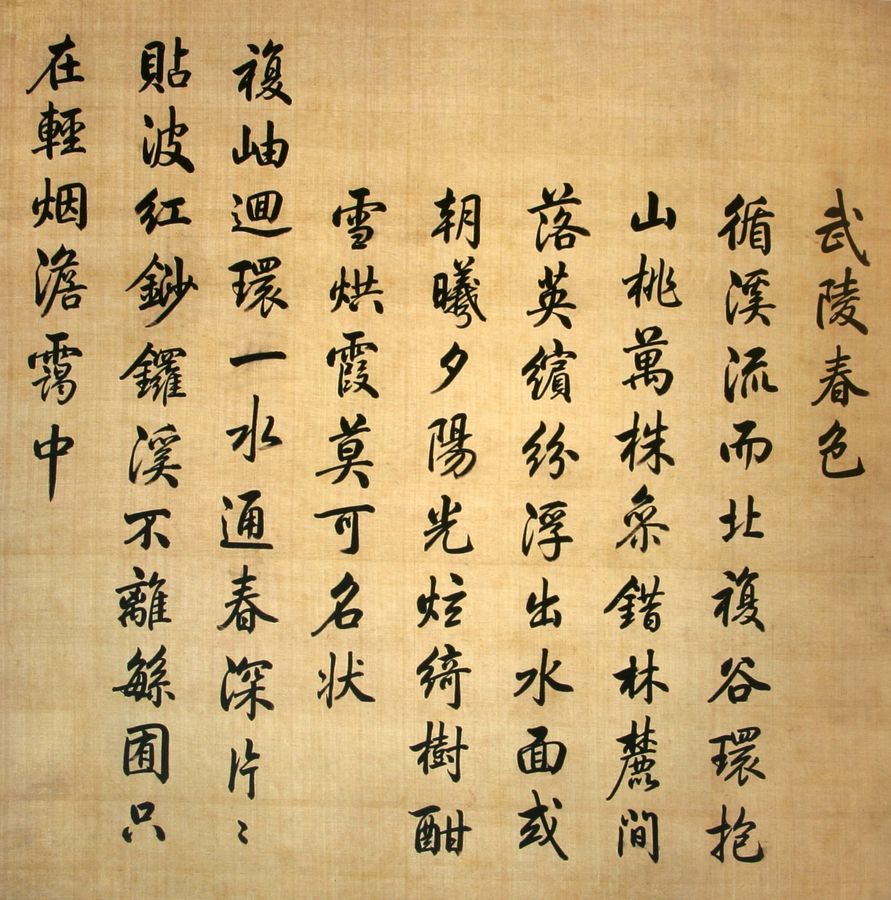 武陵春色
循溪流而北複谷環抱
山桃萬株糸錯林麓間
落英繽紛浮出水面或
朝曦夕陽光炫綺樹酣
雪烘霞莫可名状
複岫迴環一水通春深片〻
貼波红鈔鑼溪不離繇囿只
在輕烟澹靄中